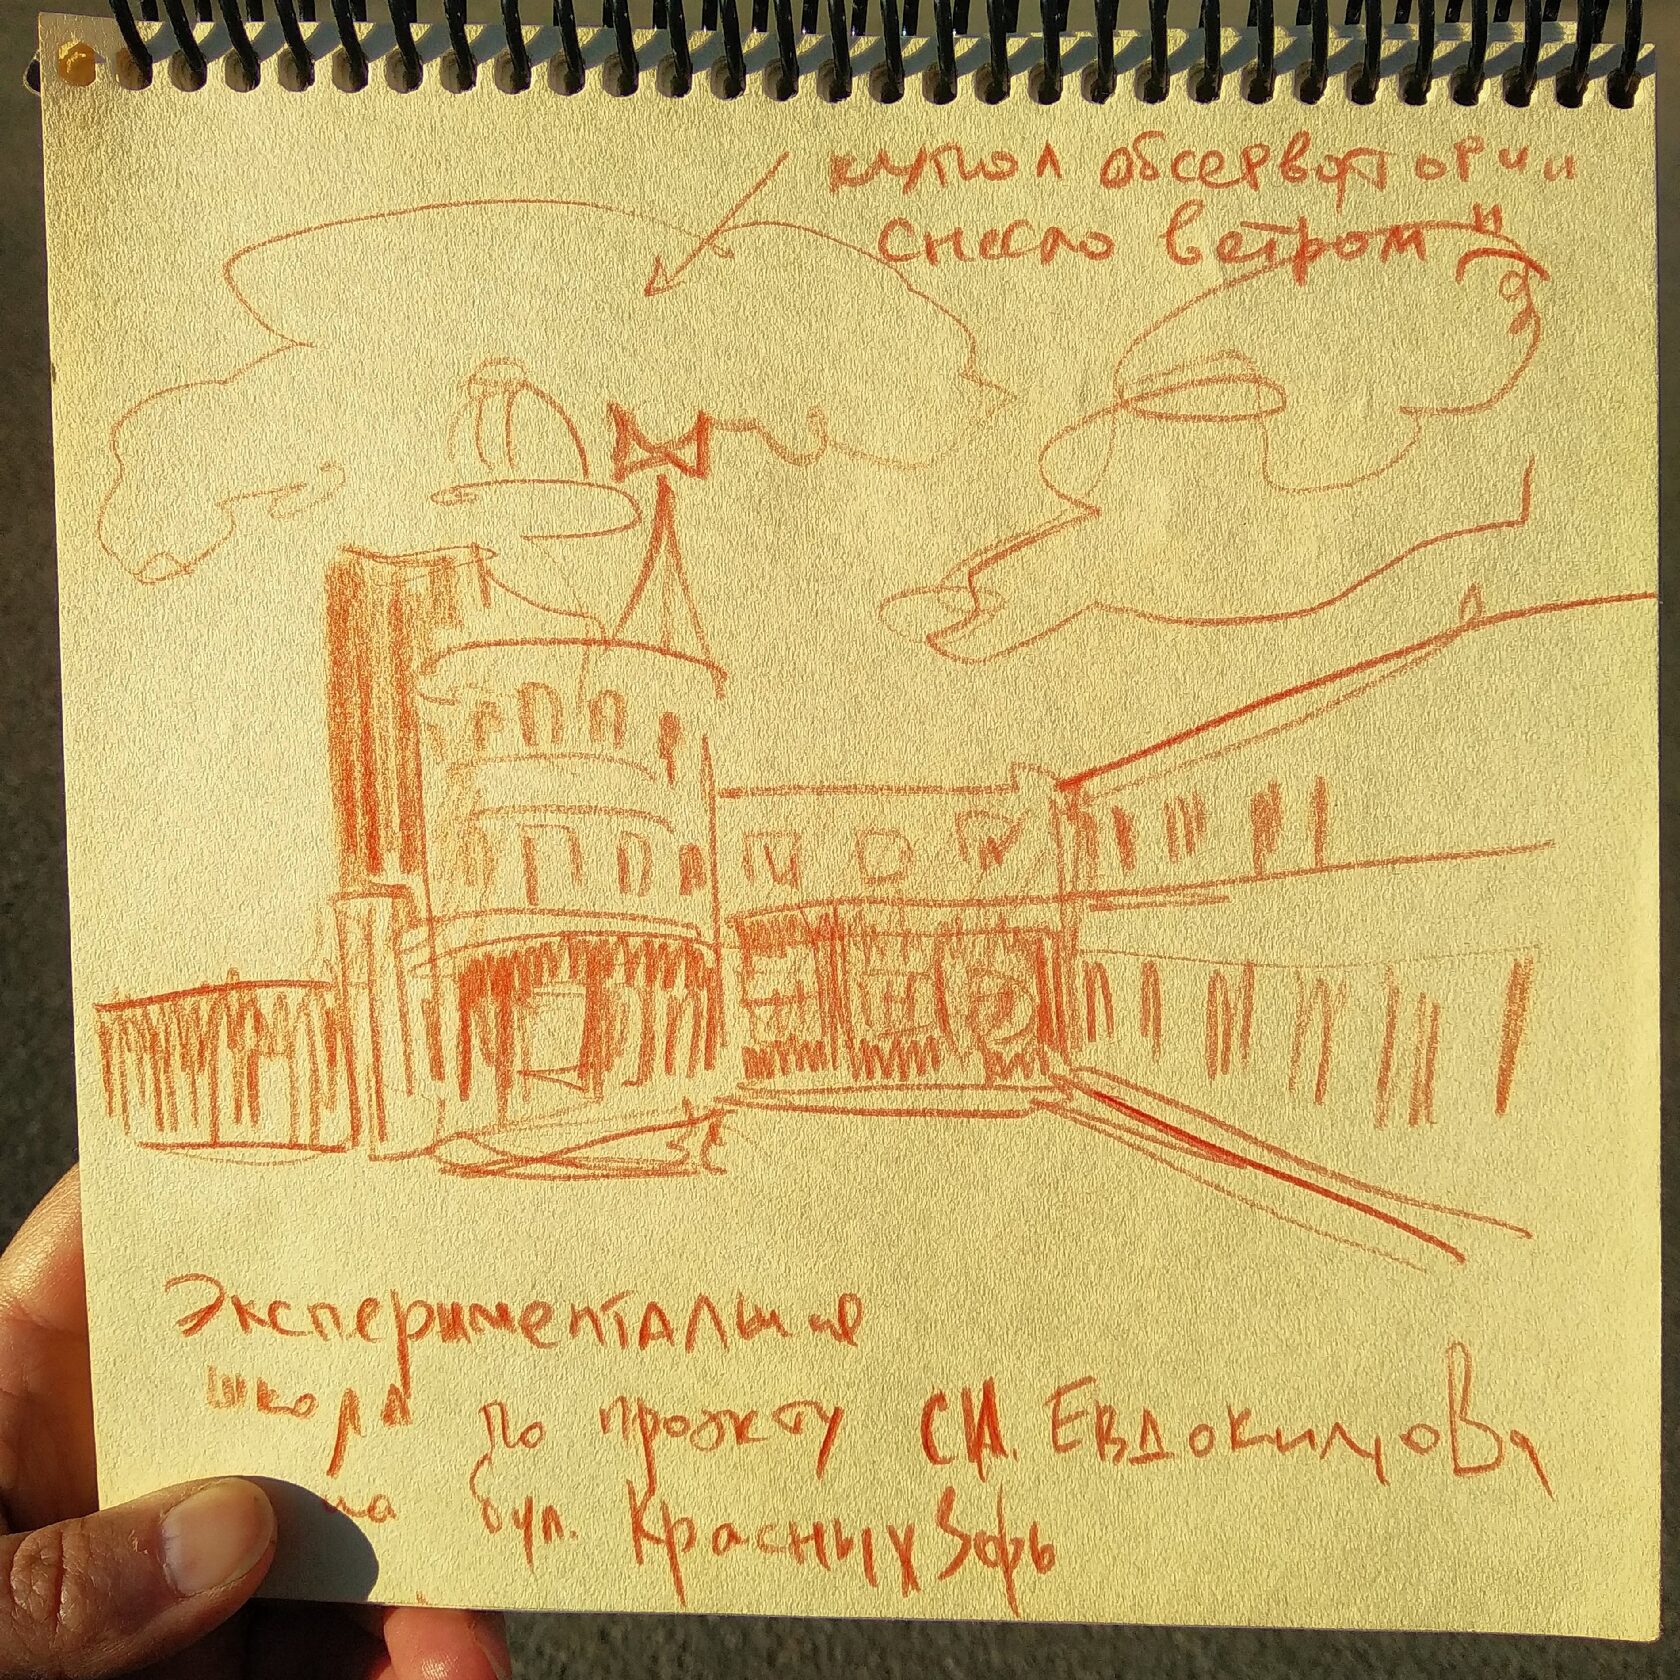 купол обсерватории
снесло ветром"
Экспериментальная
школа по проекту С.И. Евдокимова
на бул. Красных Зорь